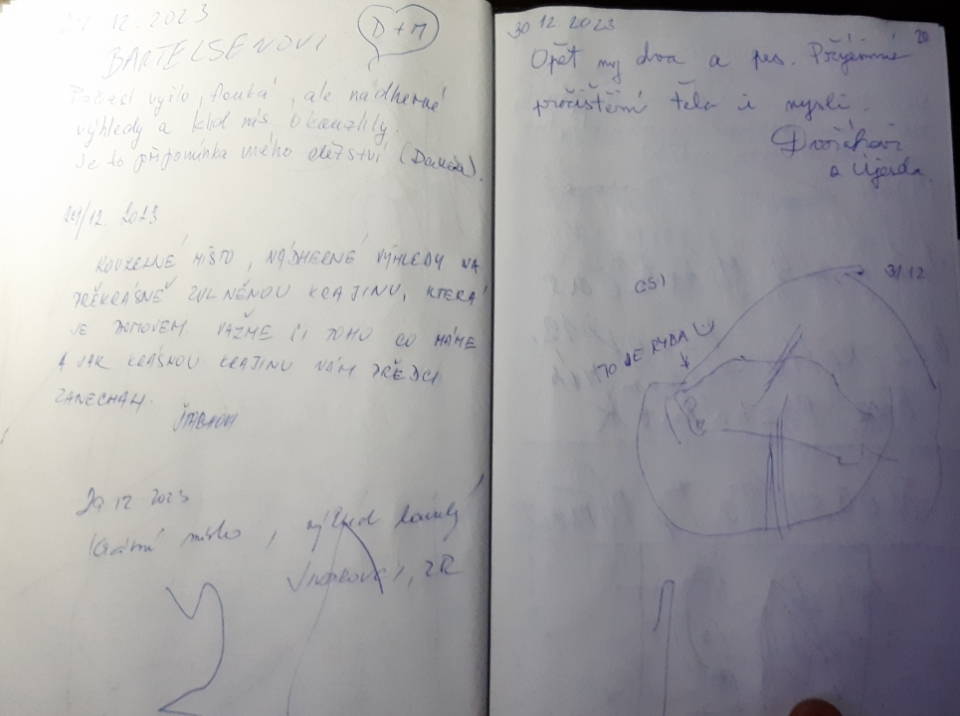 29 12. 2023
BARTELSENOVI
D + M
Počasí vyšlo, fouká, ale nádherné
výhledy a klid nás okouzlily.
Je to připomínka mého dětství
29/12. 2023
KOUZELNÉ MÍSTO, NÁDHERNÉ VÝHLEDY NA
PŘEKRÁSNĚ ZVLNĚNOU KRAJINU, KTERÁ
JE DOMOVEM. VAŽME SI TOHO CO MÁME
A JAK KRÁSNOU KRAJINU NÁM PŘEDCI
ZANECHALI.
29 12 2023
Krásné místo, výhled
, ZR
30 12. 2023
20
Opět my dva a pes. Příjemné
pročištění těla i mysli.
Dvořákovi
a
31 12
TO JE RYBA